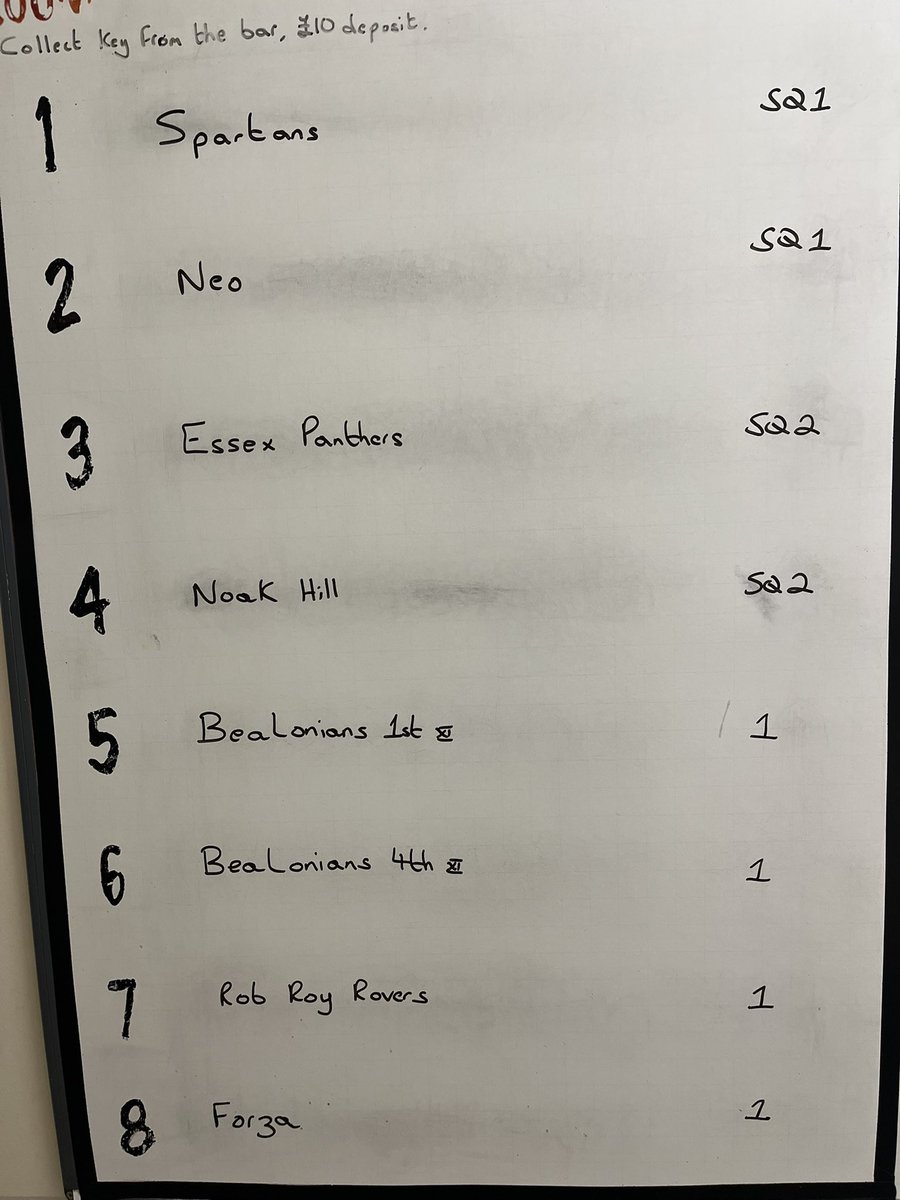 Collect Key from the bar, £10 deposit.
1 Spartans SQ1
2 Neo SQ1
3 Essex Panthers SQ2
4 Noak Hill SQ2
5 Bealonians 1st XI 1
6 Bealonians 4th XI 1
7 Rob Roy Rovers 1
8 Forza 1